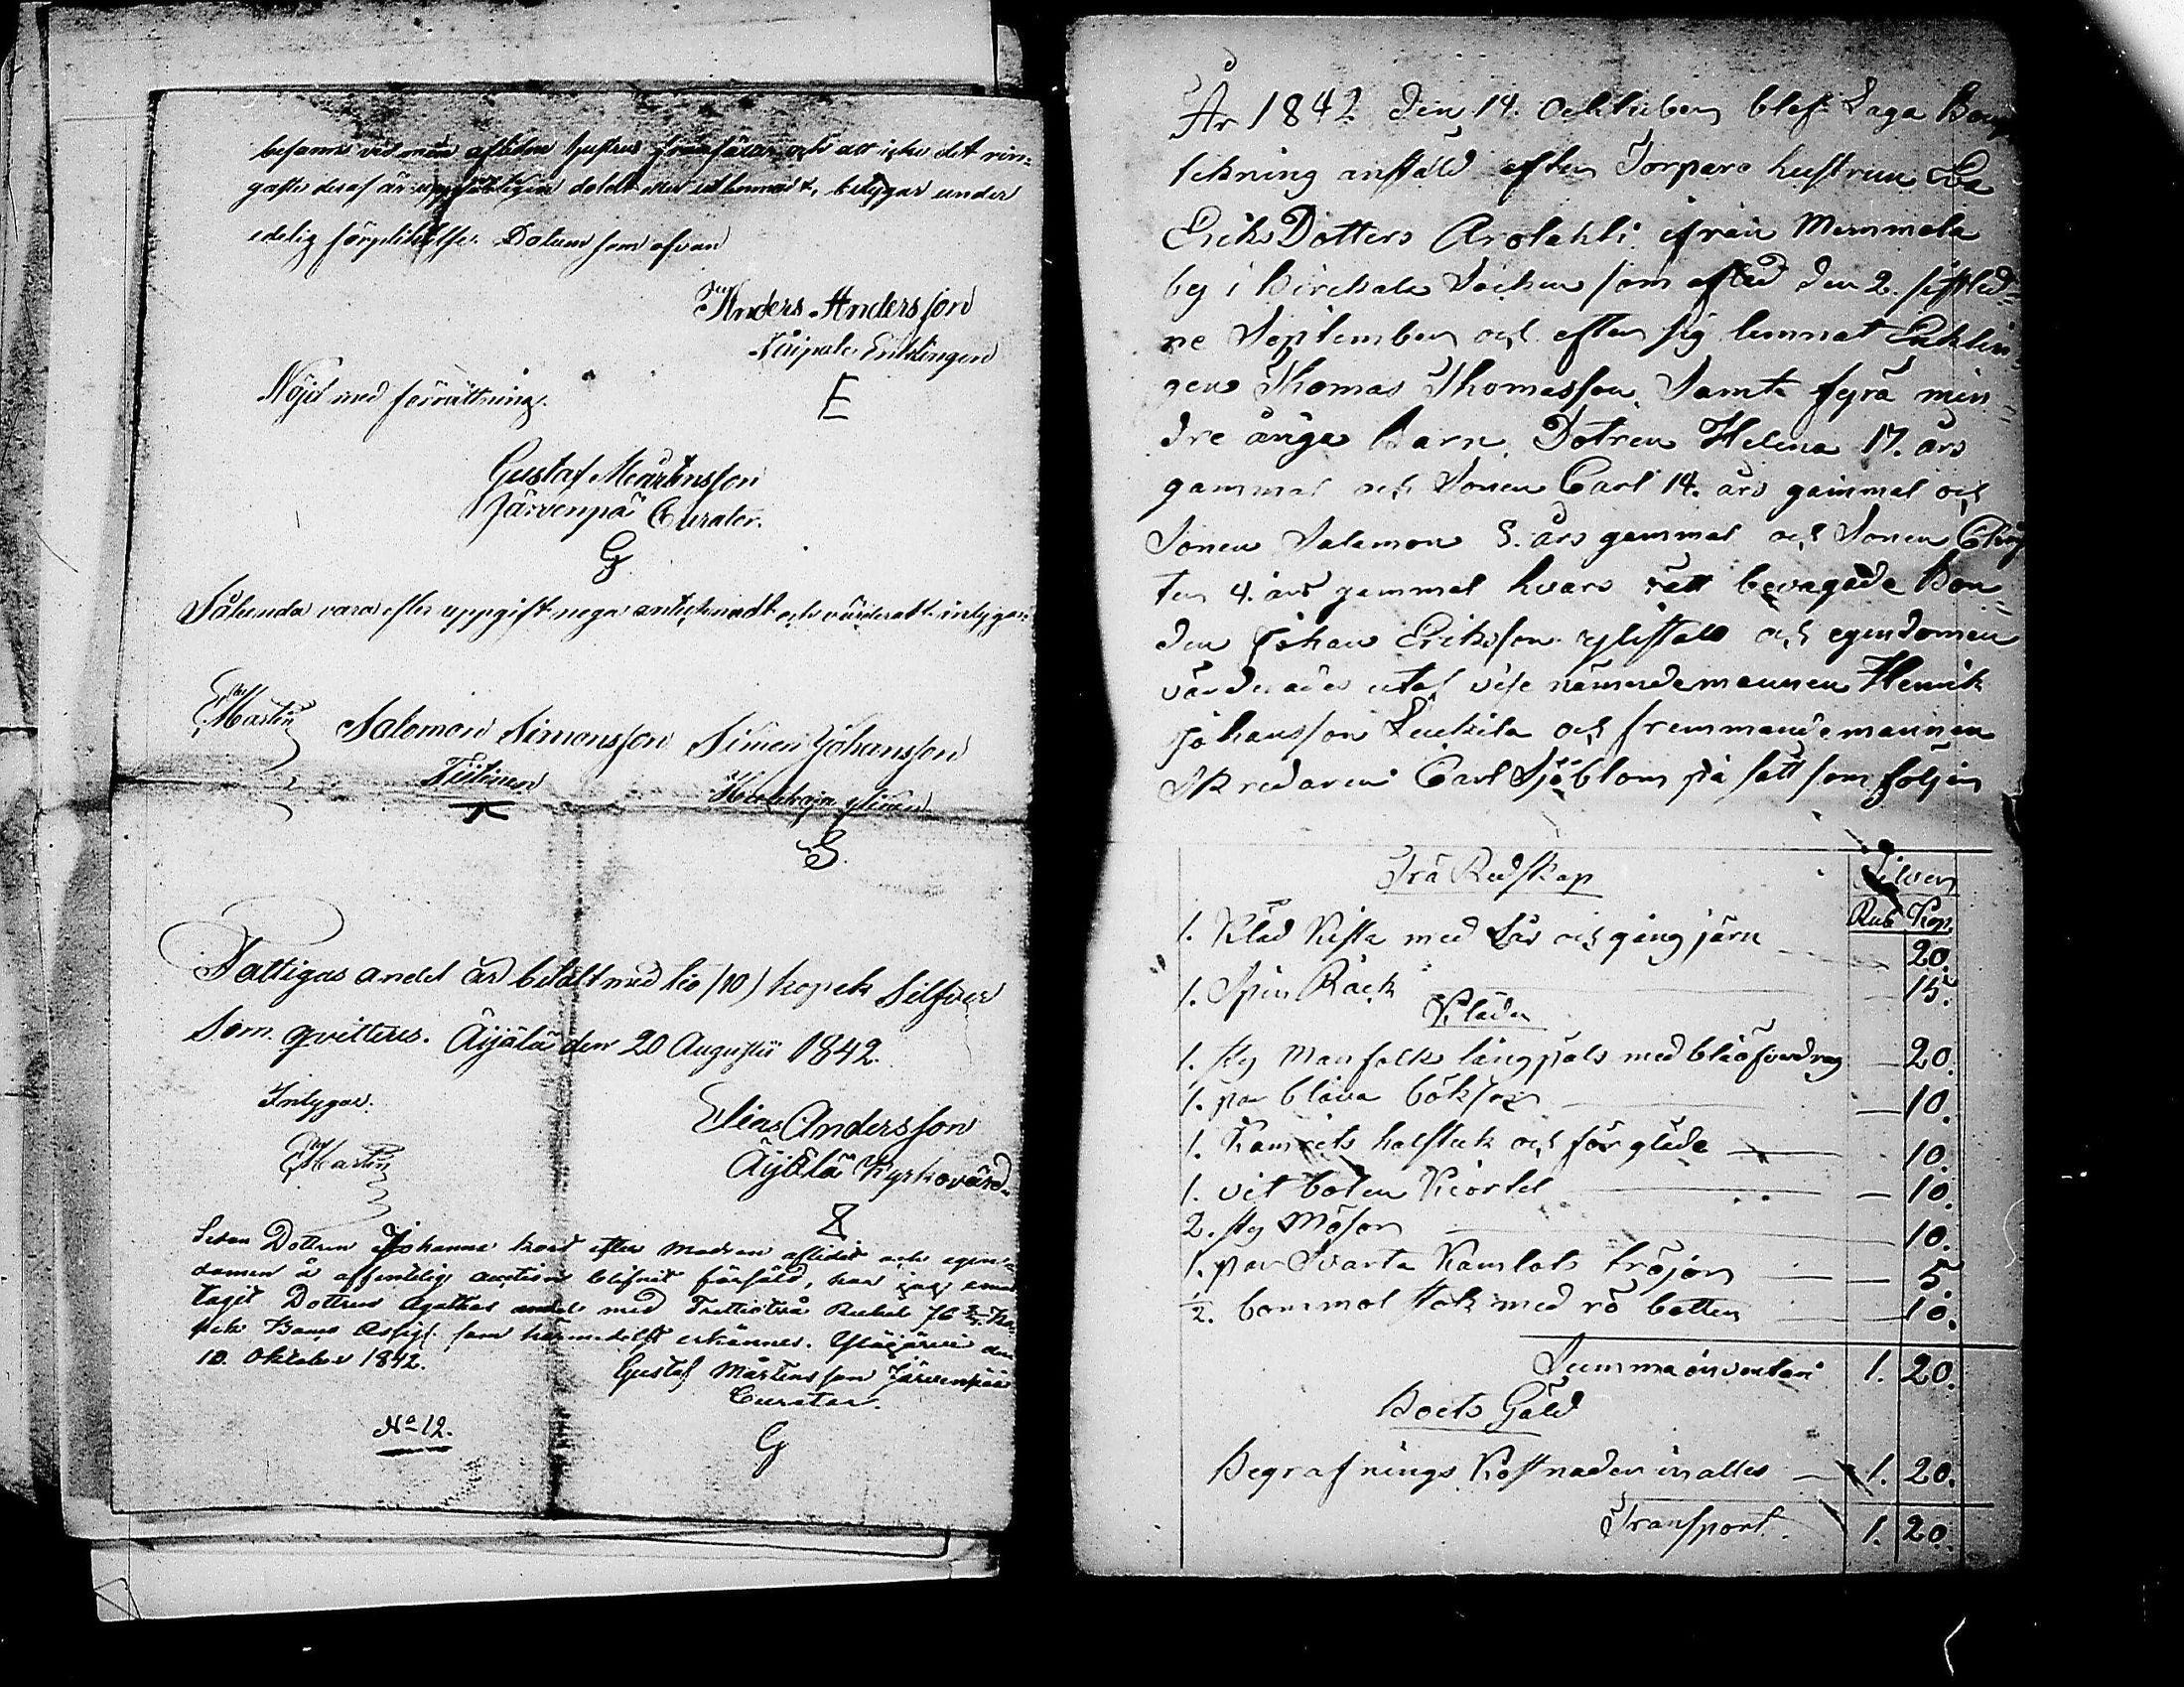 befanns vid min aflidne hustrus frånfälle och att icke det rin-
gaste deraf är uppsåtligen doldt eller utlemnadt, betygar under
edelig förplicktelse. Datum som ofvan
Anders Andersson
Enklingen
Nöjd med förrättning.
E
Gustaf Mårtensson
Järvenpä Curator.
G
Sålunda vara efter uppgift noga antecknadt och värderadt intygar
Martin
Salomon Simonsson Simon Johansson
S.
Fattigas andel är betalt med tio /10/ kopek Silfver
Som qvitteres. Äijälä den 20 Augustii 1842.
Intygar.
Martin
Elias Andersson
Äijälä Kyrkovärd
Sedan Dottren Johanna kort efter modren aflidit och egen-
domen å offentelig auction blifvit försåld, har jag emot
tagit Dottrens Agathas andel med Trettiotvå Rubel 76 Ko-
pek Banco Assig. som härmedelst erkännes. Ylöjärvi den
10. Oktober 1842.
Gustaf Mårtensson Järvenpää
Curator.
No 12.
G
År 1842 den 14. October blef Laga Boup
tekning anstäld efter Torpare hustrun Eva
Eriks Dotters Arolahti ifrån Memmala
by i Birckala Socken som afled den 2. sistled-
ne September och efter sig lemnat Enklin-
gen Thomas Thomasson, Samt fyra min-
dre åriga Barn, Dotren Helena 17. års
gammal och Sonen Carl 14. års gammal och
Sonen Salomon 8. års gammal och Sonen
4. års gammal hvars rätt bevagade Bon-
den Johan Eriksson och egendomen
värderades utaf nämndemannen Henrik
Johansson och fremmandemannen
Skredaren Carl Sjöblom på sätt som följer
Trä Redskap
Silver
Rub Kop.
1. Kläd Kista med Lås och gång järn 20.
1. Spin Råck 15.
Kläder
1. sty Manfolks långpäls med blåöfverdrag 20.
1. par blåua böksor 10.
1. halstuk och för gläde 10.
1. vit boten Kiortel 10.
2. sty Mösor 10.
1. par Svarta Kamlots tröjor 5.
1/2. bommol stok med rö batten 10.
Summa inventari 1. 20.
Boets Gäld
Begrafnings Kostnaden in alles 1. 20.
Transport. 1. 20.